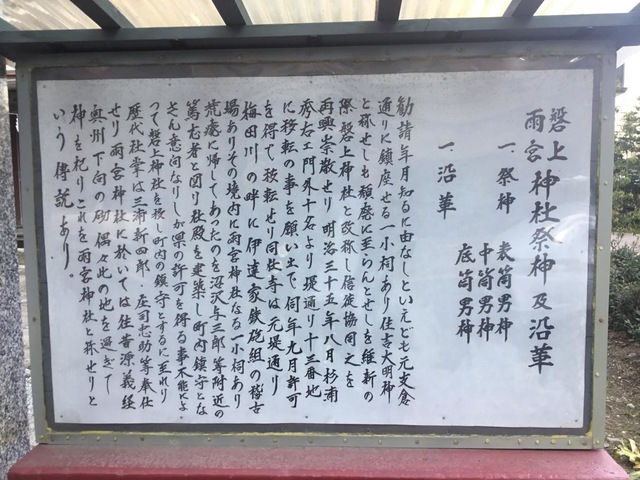 磐上
雨宮 神社祭神及沿革
一、祭神 表筒男神
中筒男神
底筒男神
一、沿革
勧請年月知るに由なしといえども元支倉
通りに鎮座せる一小祠あり住吉大明神
と称せしも頽廃に至らんとせしを維新の
際磐上神社と改称し信徒協同之を
再興崇敬せり 明治三十五年八月杉浦
秀右エ門外十名より 堤通り十三番地
に移転の事を願い出で同年九月許可
を得て移転せり同社寺は元堤通り
梅田川の畔に伊達家鉄砲組の稽古
場ありその境内に雨宮神社なる一小祠あり
荒廃に帰してあったのを沼沢与三郎等附近の
篤志者と図り社殿を建築し町内鎮守とな
さん意向なりしが県の許可を得る事不能によ
って磐上神社を移し町内の鎮守とするに至れり
歴代社掌は三浦新四郎・庄司忠助等奉仕
せり 雨宮神社に於いては住昔源義経
奥州下向の砌偶々此の地を過ぎて
神を祀りこれを雨宮神社と称せりと
いう傳説あり。